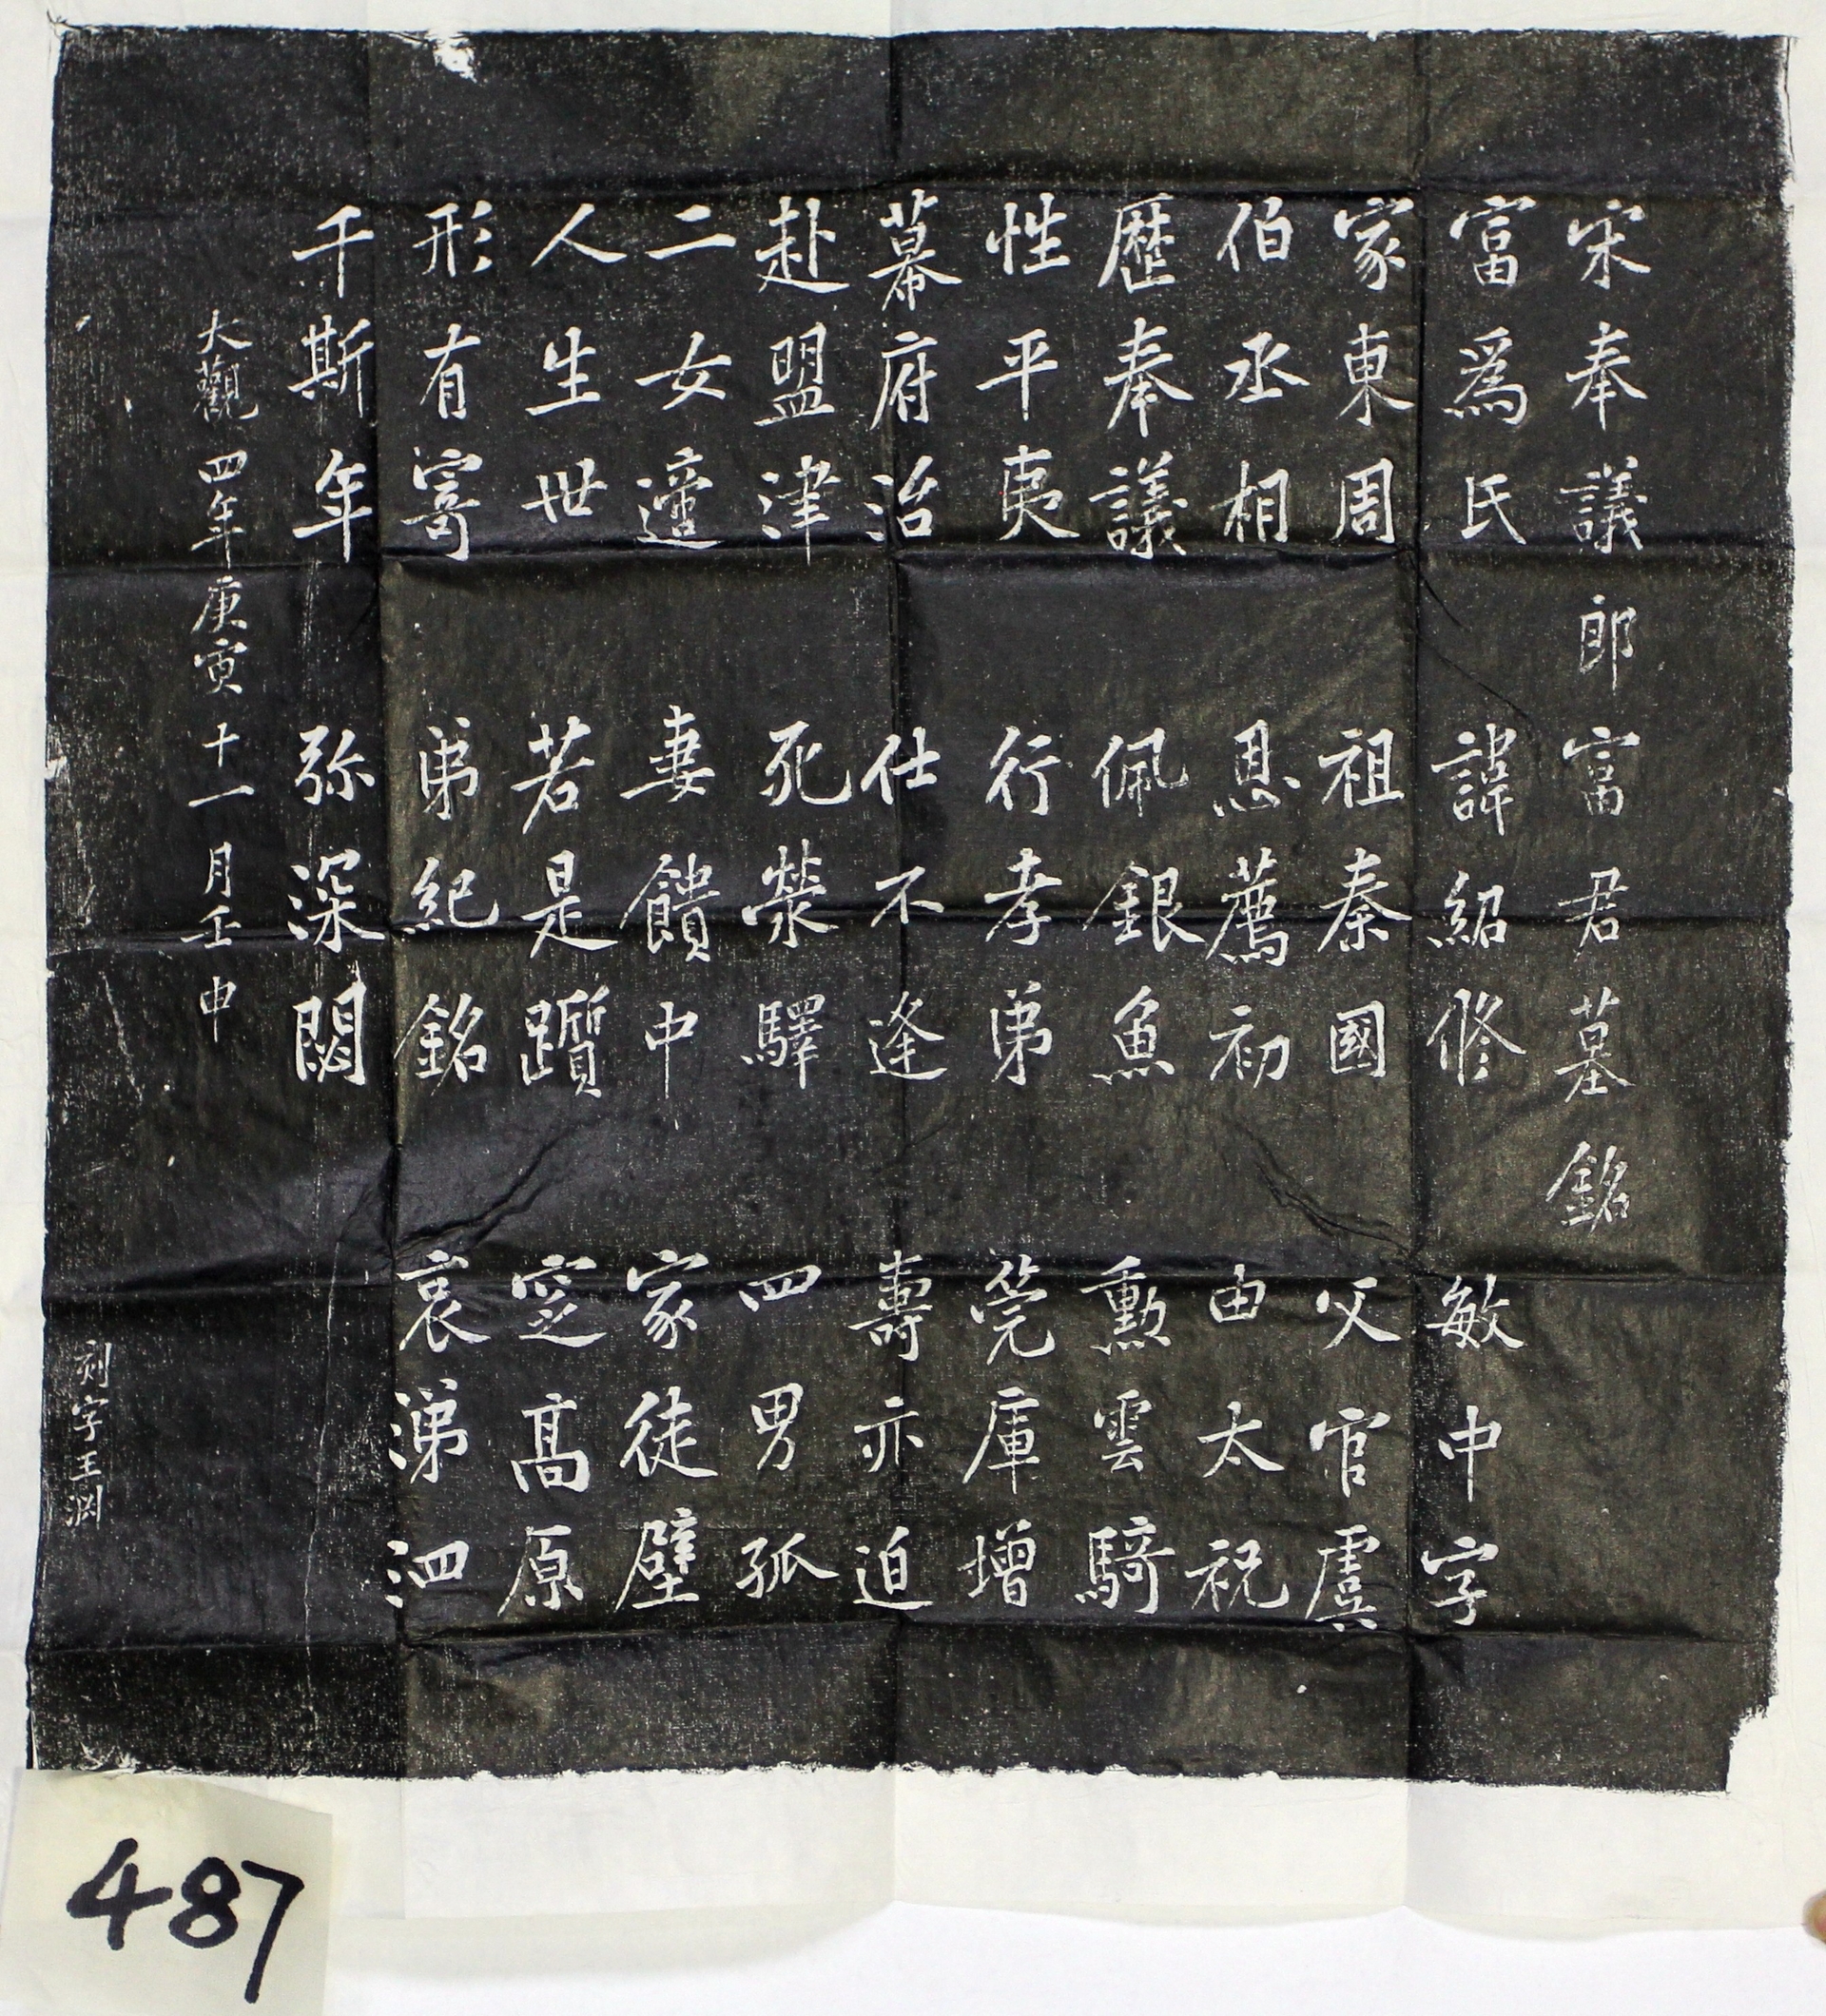 宋奉議郎富君墓銘
富爲氏 諱紹修 敏中字
家東周 祖秦國 父官虞
伯丞相 恩薦初 由太祝
歷奉議 佩銀魚 勳雲騎
性平夷 行孝弟 筦庫增
幕府治 仕不逢 壽亦迫
赴盟津 死滎驛 四男孤
二女童 妻饋中 家徒壁
人生世 若是躓 窆高原
形有寄 弟紀銘 哀涕泗
千斯年 弥深閟
大觀四年庚寅十一月壬申
刻字王渊
487